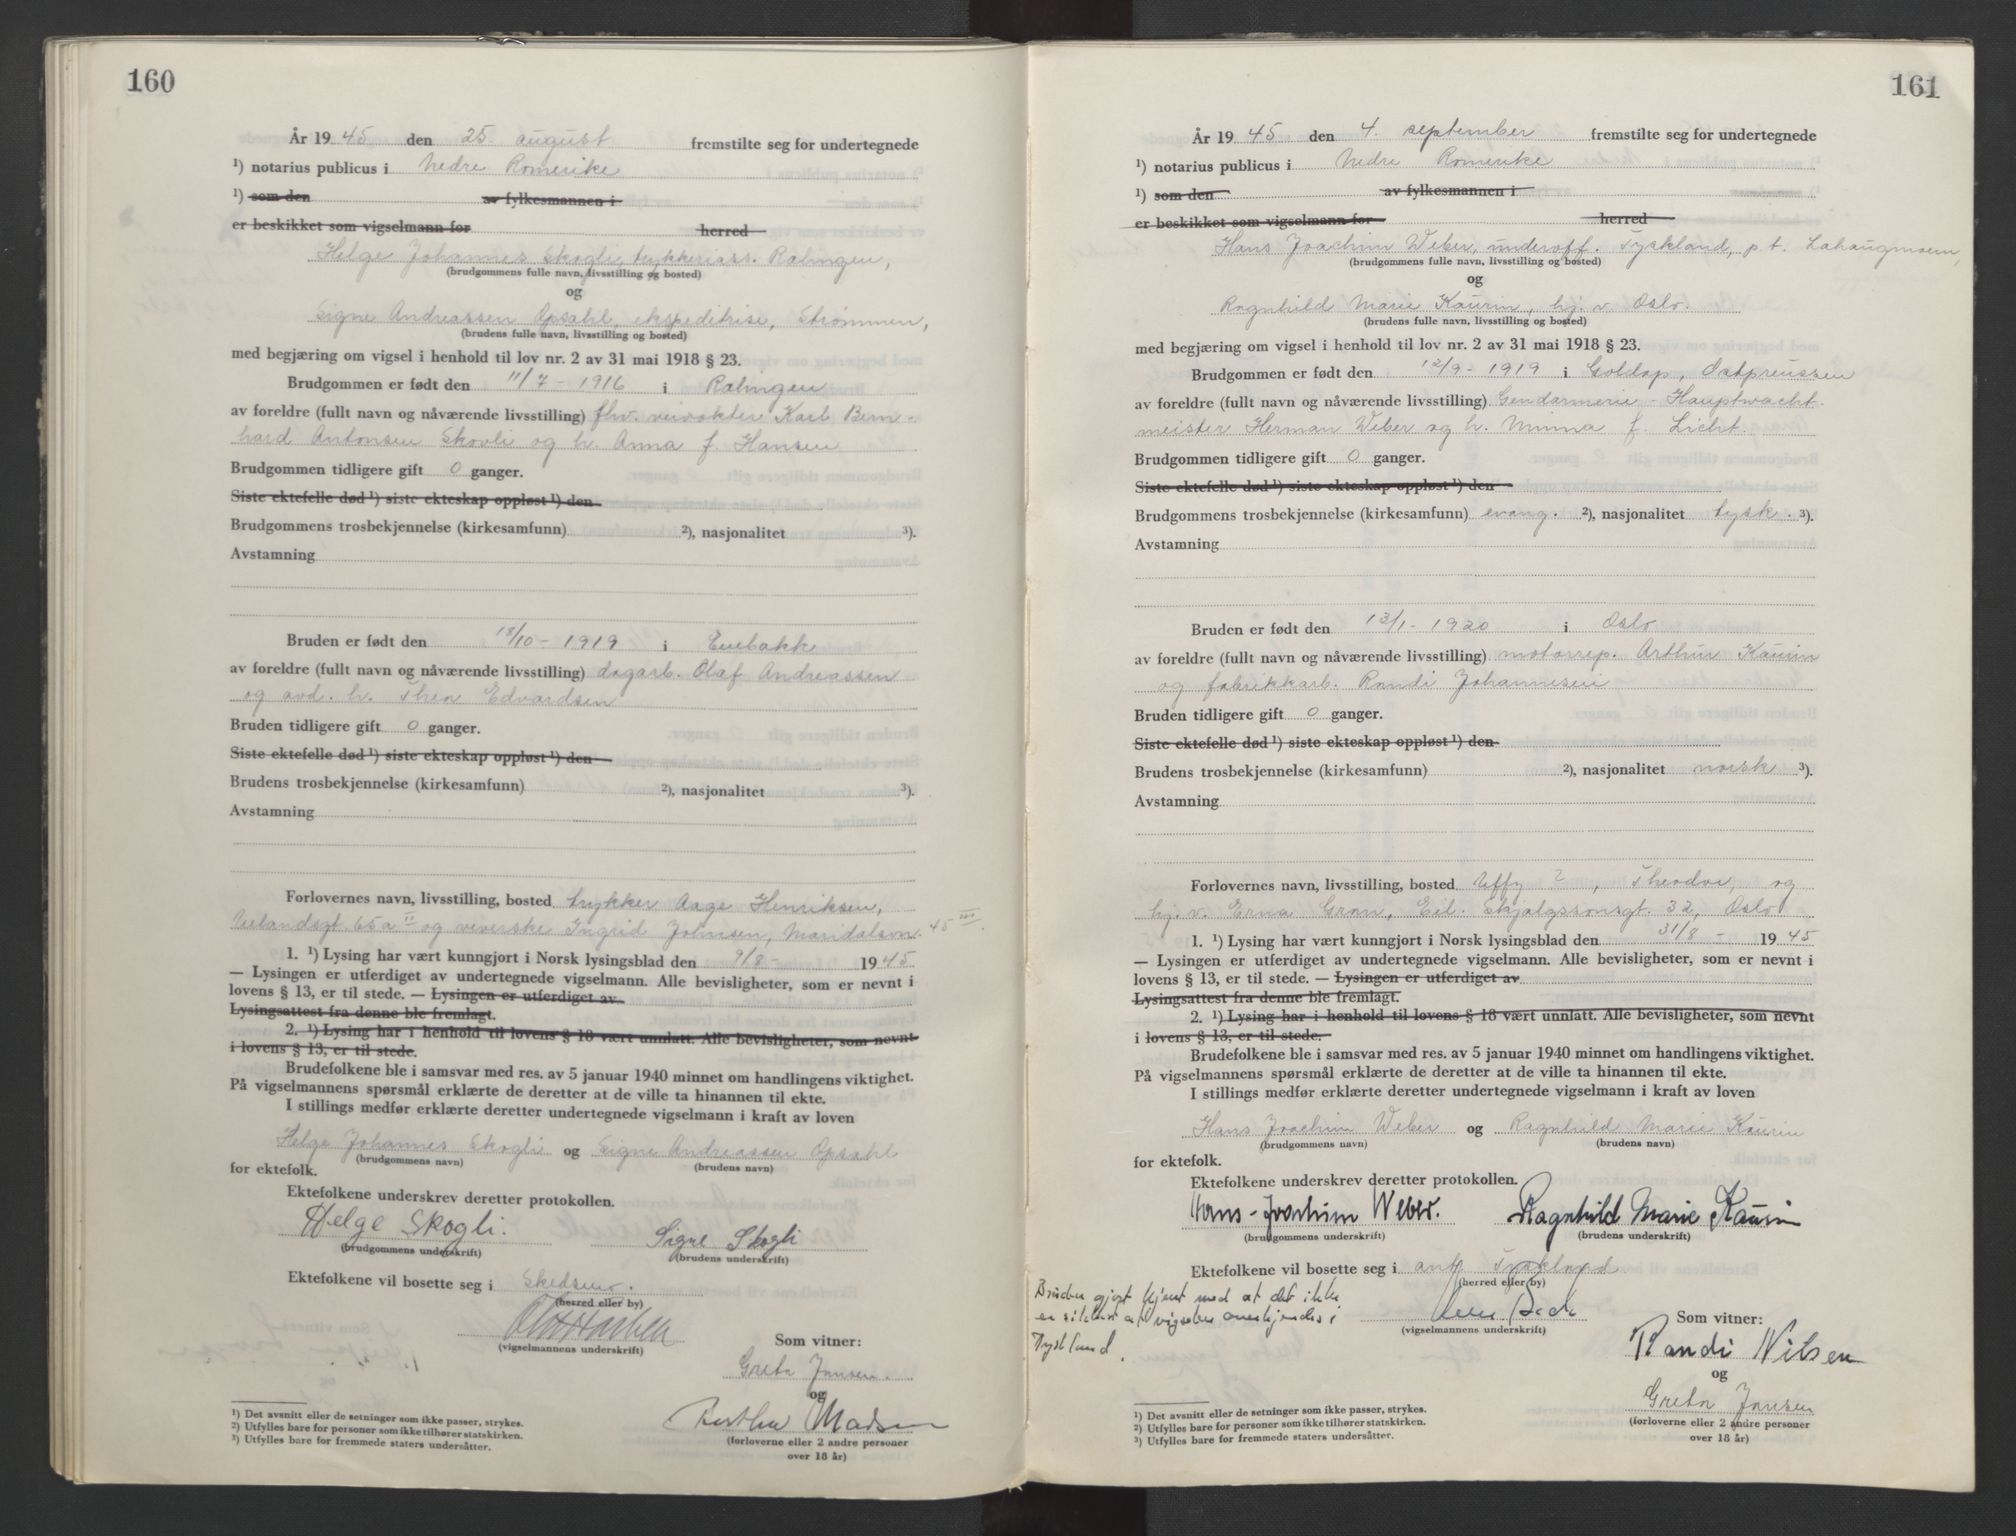 160
År 19 45 den 25. august fremstilte seg for undertegnede
¹) notarius publicus i Nedre Romerike
¹) som den av fylkesmannen i
er beskikket som vigselmann for herred
Helge Johannes Skogli, trykkeriass. Rælingen,
(brudgommens fulle navn, livsstilling og bosted)
og
Signe Andreassen Opsahl, ekspeditrise, Strømmen,
(brudens fulle navn, livsstilling og bosted)
med begjæring om vigsel i henhold til lov nr. 2 av 31 mai 1918 § 23.
Brudgommen er født den 11/7 - 1916 i Rælingen
av foreldre (fullt navn og nåværende livsstilling) fhv. veivokter Karl Bern-
hard Antonsen Skovli og h. Anna f. Hansen
Brudgommen tidligere gift 0 ganger.
Siste ektefelle død ¹) siste ekteskap oppløst ¹) den
Brudgommens trosbekjennelse (kirkesamfunn) ²), nasjonalitet ³).
Avstamning
Bruden er født den 18/10 - 1919 i Enebakk
av foreldre (fullt navn og nåværende livsstilling) dagarb. Olaf Andreassen
og avd. h. Thea Edvardsen
Bruden tidligere gift 0 ganger.
Siste ektefelle død ¹) siste ekteskap oppløst ¹) den
Brudens trosbekjennelse (kirkesamfunn) ²), nasjonalitet ³).
Avstamning
Forlovernes navn, livsstilling, bosted trykker Aage Henriksen,
Uelandsgt. 65a II og veverske Ingrid Johnsen, Maridalsvn. 45 III.
1. ¹) Lysing har vært kunngjort i Norsk lysingsblad den 9/8 - 19 45
— Lysingen er utferdiget av undertegnede vigselmann. Alle bevisligheter, som er nevnt i
lovens § 13, er til stede. — Lysingen er utferdiget av
Lysingsattest fra denne ble fremlagt.
2. ¹) Lysing har i henhold til lovens § 18 vært unnlatt. Alle bevisligheter, som nevnt
i lovens § 13, er til stede.
Brudefolkene ble i samsvar med res. av 5 januar 1940 minnet om handlingens viktighet.
På vigselmannens spørsmål erklærte de deretter at de ville ta hinannen til ekte.
I stillings medfør erklærte deretter undertegnede vigselmann i kraft av loven
Helge Johannes Skogli og Signe Andreassen Opsahl
(brudgommens navn) (brudens navn)
for ektefolk.
Ektefolkene underskrev deretter protokollen.
Helge Skogli. Signe Skogli
(brudgommens underskrift) (brudens underskrift)
Ektefolkene vil bosette seg i Skedsmo.
(herred eller by)
(vigselmannens underskrift)
Som vitner:
Greta Jansen.
og
Madsen
(forloverne eller 2 andre personer
over 18 år)
¹) Det avsnitt eller de setninger som ikke passer, strykes.
²) Utfylles bare for personer som ikke tilhører statskirken.
³) Utfylles bare for fremmede staters undersåtter.
161
År 19 45 den 4. september fremstilte seg for undertegnede
¹) notarius publicus i Nedre Romerike
¹) som den av fylkesmannen i
er beskikket som vigselmann for herred
Hans Joachim Weber, underoff. Tyskland, p.t. Lahaugmoen,
(brudgommens fulle navn, livsstilling og bosted)
og
Ragnhild Marie Kaurin, hj. v. Oslo.
(brudens fulle navn, livsstilling og bosted)
med begjæring om vigsel i henhold til lov nr. 2 av 31 mai 1918 § 23.
Brudgommen er født den 12/9 - 1919 i Goldap, Ostpreussen
av foreldre (fullt navn og nåværende livsstilling) Gendarmerie - Hauptwacht-
meister Herman Weber og h. Minna f. Licht.
Brudgommen tidligere gift 0 ganger.
Siste ektefelle død ¹) siste ekteskap oppløst ¹) den
Brudgommens trosbekjennelse (kirkesamfunn) evang. ²), nasjonalitet tysk. ³).
Avstamning
Bruden er født den 13/1 - 1920 i Oslo
av foreldre (fullt navn og nåværende livsstilling) motorrep. Arthur Kaurin
og fabrikkarb. Randi Johannesen
Bruden tidligere gift 0 ganger.
Siste ektefelle død ¹) siste ekteskap oppløst ¹) den
Brudens trosbekjennelse (kirkesamfunn) ²), nasjonalitet norsk ³).
Avstamning
Forlovernes navn, livsstilling, bosted Uffz , Theodor, og
hj. v. Erna Gran, Eil. Skjalgssonsgt. 32, Oslo
1. ¹) Lysing har vært kunngjort i Norsk lysingsblad den 31/8 - 19 45
— Lysingen er utferdiget av undertegnede vigselmann. Alle bevisligheter, som er nevnt i
lovens § 13, er til stede. — Lysingen er utferdiget av
Lysingsattest fra denne ble fremlagt.
2. ¹) Lysing har i henhold til lovens § 18 vært unnlatt. Alle bevisligheter, som nevnt
i lovens § 13, er til stede.
Brudefolkene ble i samsvar med res. av 5 januar 1940 minnet om handlingens viktighet.
På vigselmannens spørsmål erklærte de deretter at de ville ta hinannen til ekte.
I stillings medfør erklærte deretter undertegnede vigselmann i kraft av loven
Hans Joachim Weber og Ragnhild Marie Kaurin
(brudgommens navn) (brudens navn)
for ektefolk.
Ektefolkene underskrev deretter protokollen.
Hans-Joachim Weber. Ragnhild Marie Kaurin
(brudgommens underskrift) (brudens underskrift)
Ektefolkene vil bosette seg i ant. Tyskland
(herred eller by)
Bruden gjort kjent med at det ikke
er sikkert at vigselen anerkjendes i
Tyskland.
(vigselmannens underskrift)
Som vitner:
Randi Nilsen
og
Greta Jansen
(forloverne eller 2 andre personer
over 18 år)
¹) Det avsnitt eller de setninger som ikke passer, strykes.
²) Utfylles bare for personer som ikke tilhører statskirken.
³) Utfylles bare for fremmede staters undersåtter.